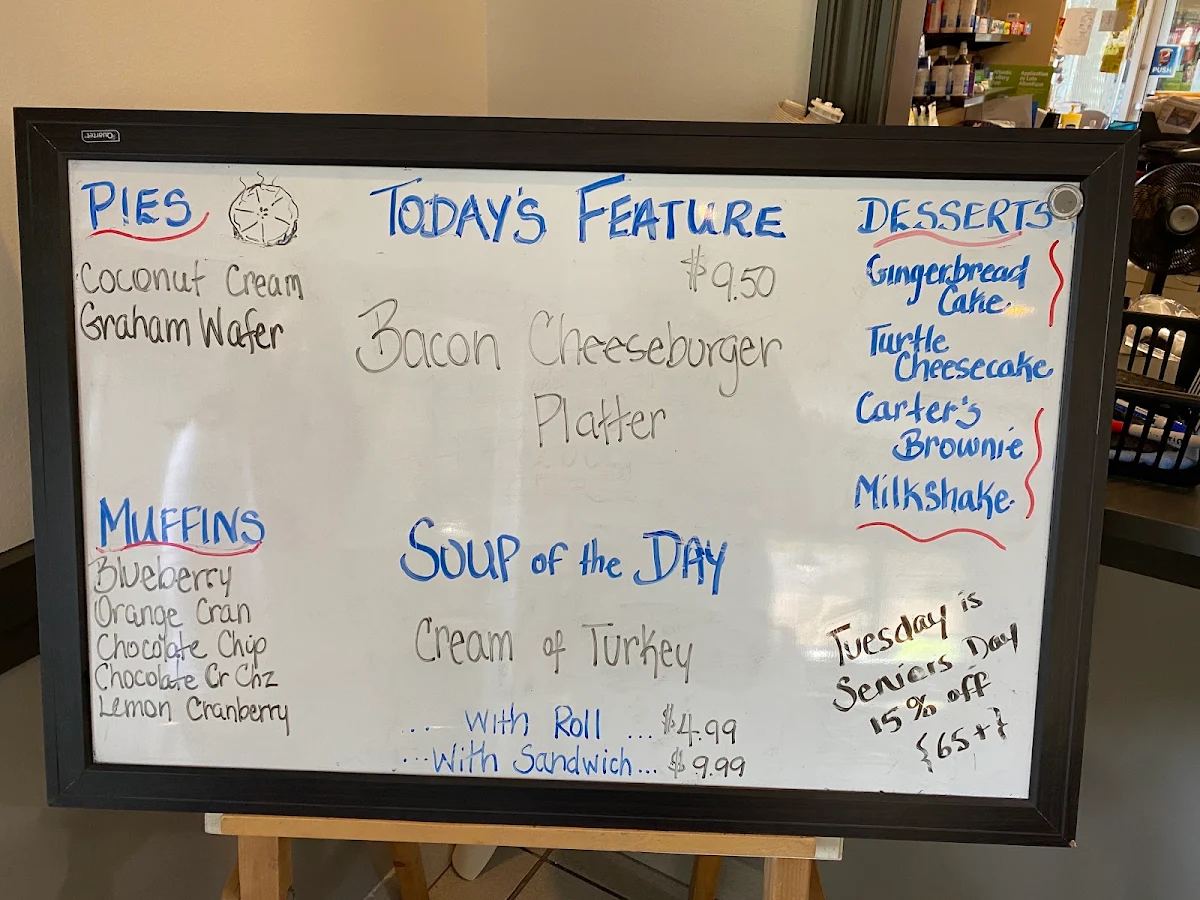 Quartet
PIES
Coconut Cream
Graham Wafer
MUFFINS
Blueberry
Orange Cran
Chocolate Chip
Chocolate Cr Chz
Lemon Cranberry
TODAY'S FEATURE
$9.50
Bacon Cheeseburger
Platter
SOUP of the DAY
Cream of Turkey
... With Roll ... $4.99
... With Sandwich... $9.99
DESSERTS
Gingerbread
Cake
Turtle
Cheesecake
Carter's
Brownie
Milkshake
Tuesday is
Seniors Day
15% off
{65+}
PUSH